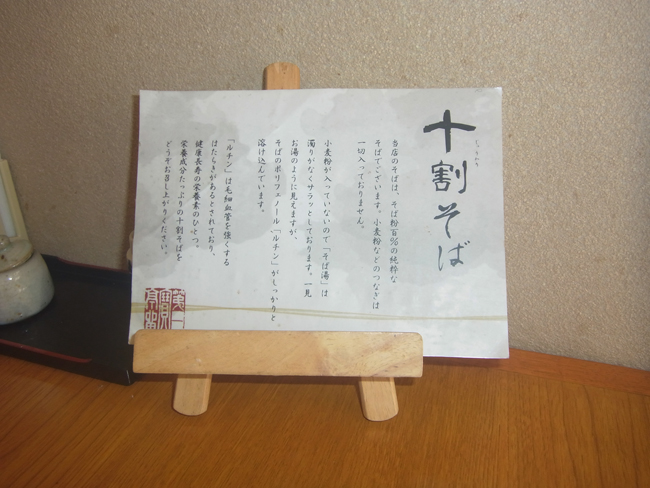 十割そば
じゅうわり
当店のそばは、そば粉百%の純粋な
そばでございます。小麦粉などのつなぎは
一切入っておりません。
小麦粉が入っていないので「そば湯」は
濁りがなくサラッとしております。一見
お湯のように見えますが、
そばのポリフェノール、「ルチン」がしっかりと
溶け込んでいます。
「ルチン」は毛細血管を強くする
はたらきがあるとされており、
健康長寿の栄養素のひとつ。
栄養成分たっぷりの十割そばを
どうぞお召し上がりください。